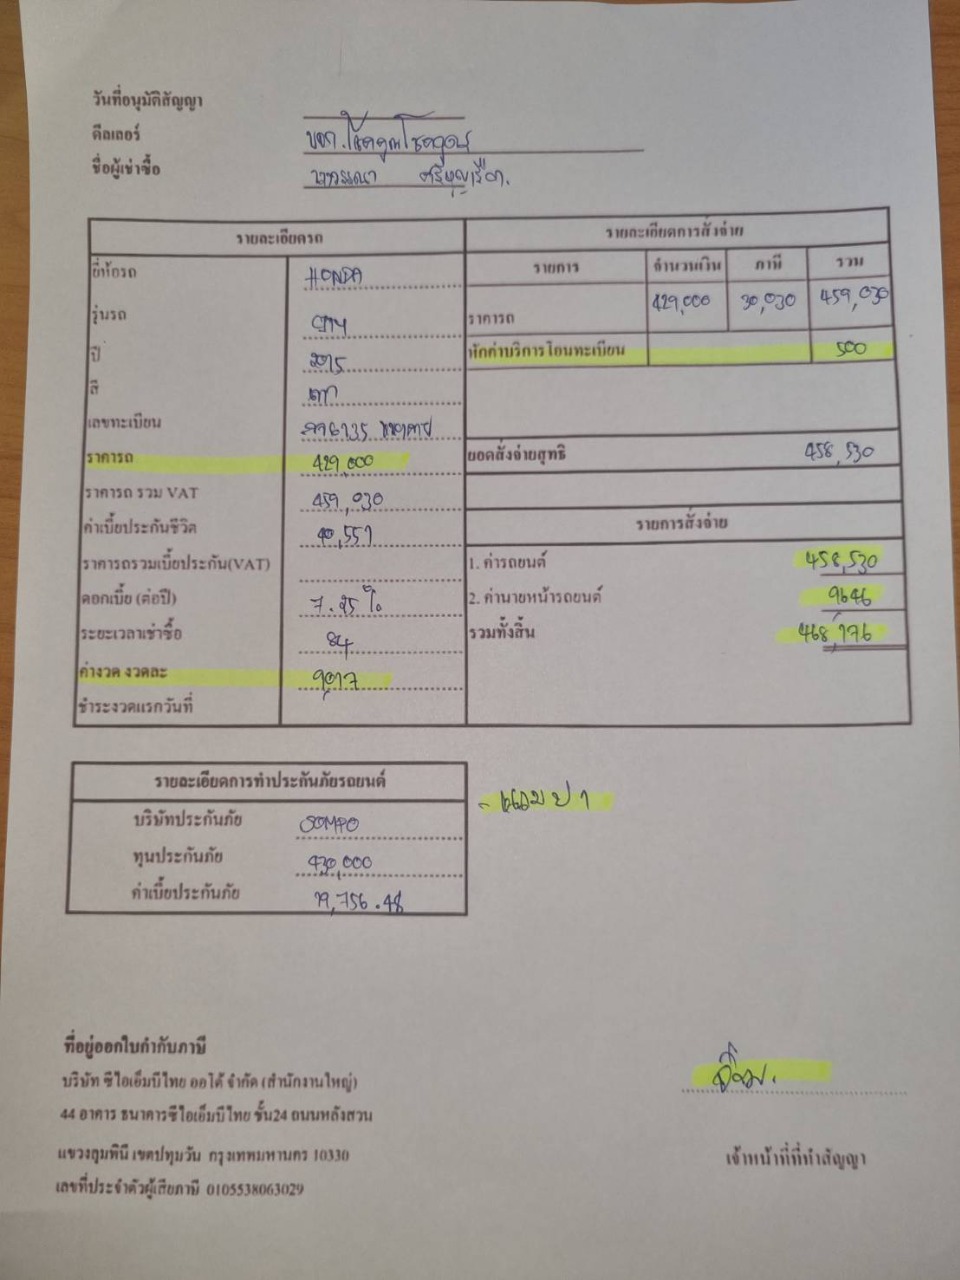 วันที่อนุมัติสัญญา
ดีลเลอร์ บจก.
ชื่อผู้เช่าซื้อ
รายละเอียดรถ
ยี่ห้อรถ HONDA
รุ่นรถ CITY
ปี 2015
สี เทา
เลขทะเบียน
ราคารถ 429,000
ราคารถ รวม VAT 459,030
ค่าเบี้ยประกันชีวิต 40,551
ราคารถรวมเบี้ยประกัน(VAT)
ดอกเบี้ย (ต่อปี)
ระยะเวลาเช่าซื้อ 84
ค่างวด งวดละ
ชำระงวดแรกวันที่
รายละเอียดการสั่งจ่าย
รายการ จำนวนเงิน ภาษี รวม
ราคารถ 429,000 30,030 459,030
หักค่าบริการโอนทะเบียน 500
ยอดสั่งจ่ายสุทธิ 458,530
รายการสั่งจ่าย
1. ค่ารถยนต์ 458,530
2. ค่านายหน้ารถยนต์ 9646
รวมทั้งสิ้น 468,176
รายละเอียดการทำประกันภัยรถยนต์
บริษัทประกันภัย SOMPO
ทุนประกันภัย 430,000
ค่าเบี้ยประกันภัย 19,756.48
- แถม ป1
ที่อยู่ออกใบกำกับภาษี
บริษัท ซีไอเอ็มบีไทย ออโต้ จำกัด (สำนักงานใหญ่)
44 อาคาร ธนาคารซีไอเอ็มบีไทย ชั้น24 ถนนหลังสวน
แขวงลุมพินี เขตปทุมวัน กรุงเทพมหานคร 10330
เลขที่ประจำตัวผู้เสียภาษี 0105538063029
เจ้าหน้าที่ที่ทำสัญญา